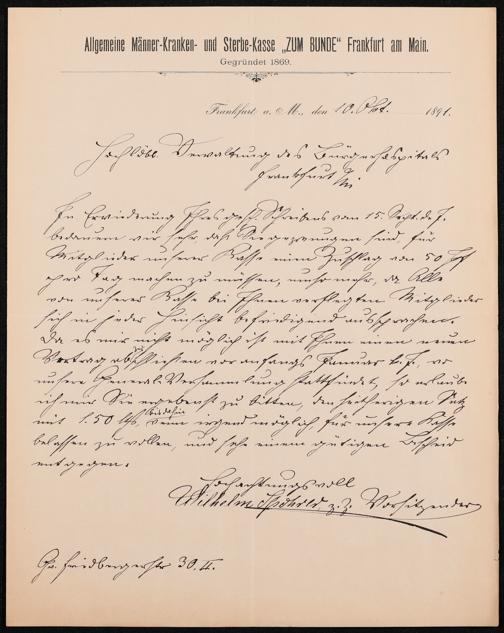 Allgemeine Männer-Kranken- und Sterbe-Kasse „ZUM BUNDE“ Frankfurt am Main.
Gegründet 1869.
Frankfurt a. M., den 10. Okt. 1891.
Hochlöbl. Verwaltung des Bürgerhospitals
Frankfurt a/M
In Erwiederung Ihres gesch. Schreibens vom 15. Sept. d. J.
bedauern wir sehr, daß Sie gezwungen sind, für
Mitglieder unserer Kasse einen Zuschlag von 50 Pf
pro Tag machen zu müssen, umso mehr, da Alle
von unserer Kasse bei Ihnen verpflegten Mitglieder
sich in jeder Hinsicht befriedigend aussprachen.
Da es mir nicht möglich ist mit Ihnen einen neuen
Vertrag abschließen vor anfangs Januar k. J., wo
unsere General-Versammlung stattfindet, so erlaube
ich mir Sie ergebenst zu bitten, den seitherigen Satz
mit 1.50 bis dahin, wenn irgend möglich, für unsere Kasse
belassen zu wollen, und sehe einem gütigen Bescheid
entgegen.
Hochachtungsvoll
Wilhelm z. Z. Vorsitzender
Gr. Friedbergerstr 30. II.